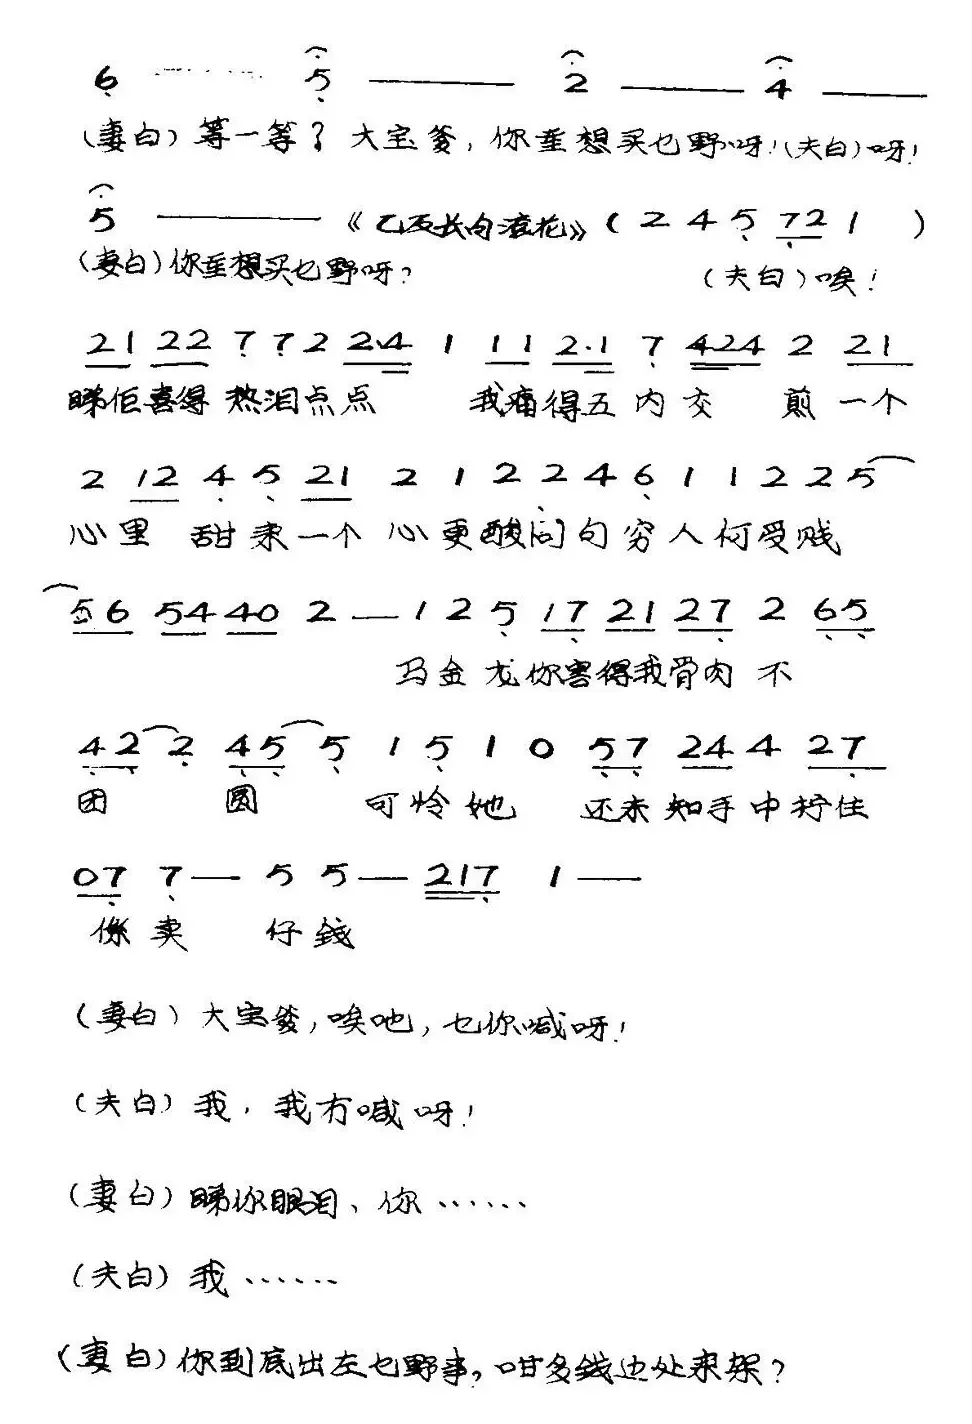 6 ……… 5 —— 2 —— 4 ——
(妻白) 等一等? 大宝爹, 你重想买乜野呀! (夫白) 呀!
5 —— 《乙反长句滚花》 ( 2 4 5 72 1 )
(妻白) 你重想买乜野呀? (夫白) 唉!
21 22 7 7 2 2·4 1 11 2·1 7 424 2 21
睇佢喜得热泪点点 我痛得五内交煎一个
2 12 4 5 21 2 1 2 2 4 6 1 1 2 2 5
心里甜来一个心更酸问句穷人何受贱
56 54 40 2 — 1 2 5 17 21 27 2 65
马金龙你害得我骨肉不
42 2 45 5 1 5 1 0 57 24 4 27
团圆可怜她还未知手中拧住
07 7 — 5 5 — 217 1 —
係卖仔錢
(妻白) 大宝爹, 唉吔, 乜你喊呀!
(夫白) 我, 我冇喊呀!
(妻白) 睇你眼泪、你……
(夫白) 我……
(妻白) 你到底出左乜野事, 咁多錢边处来架?